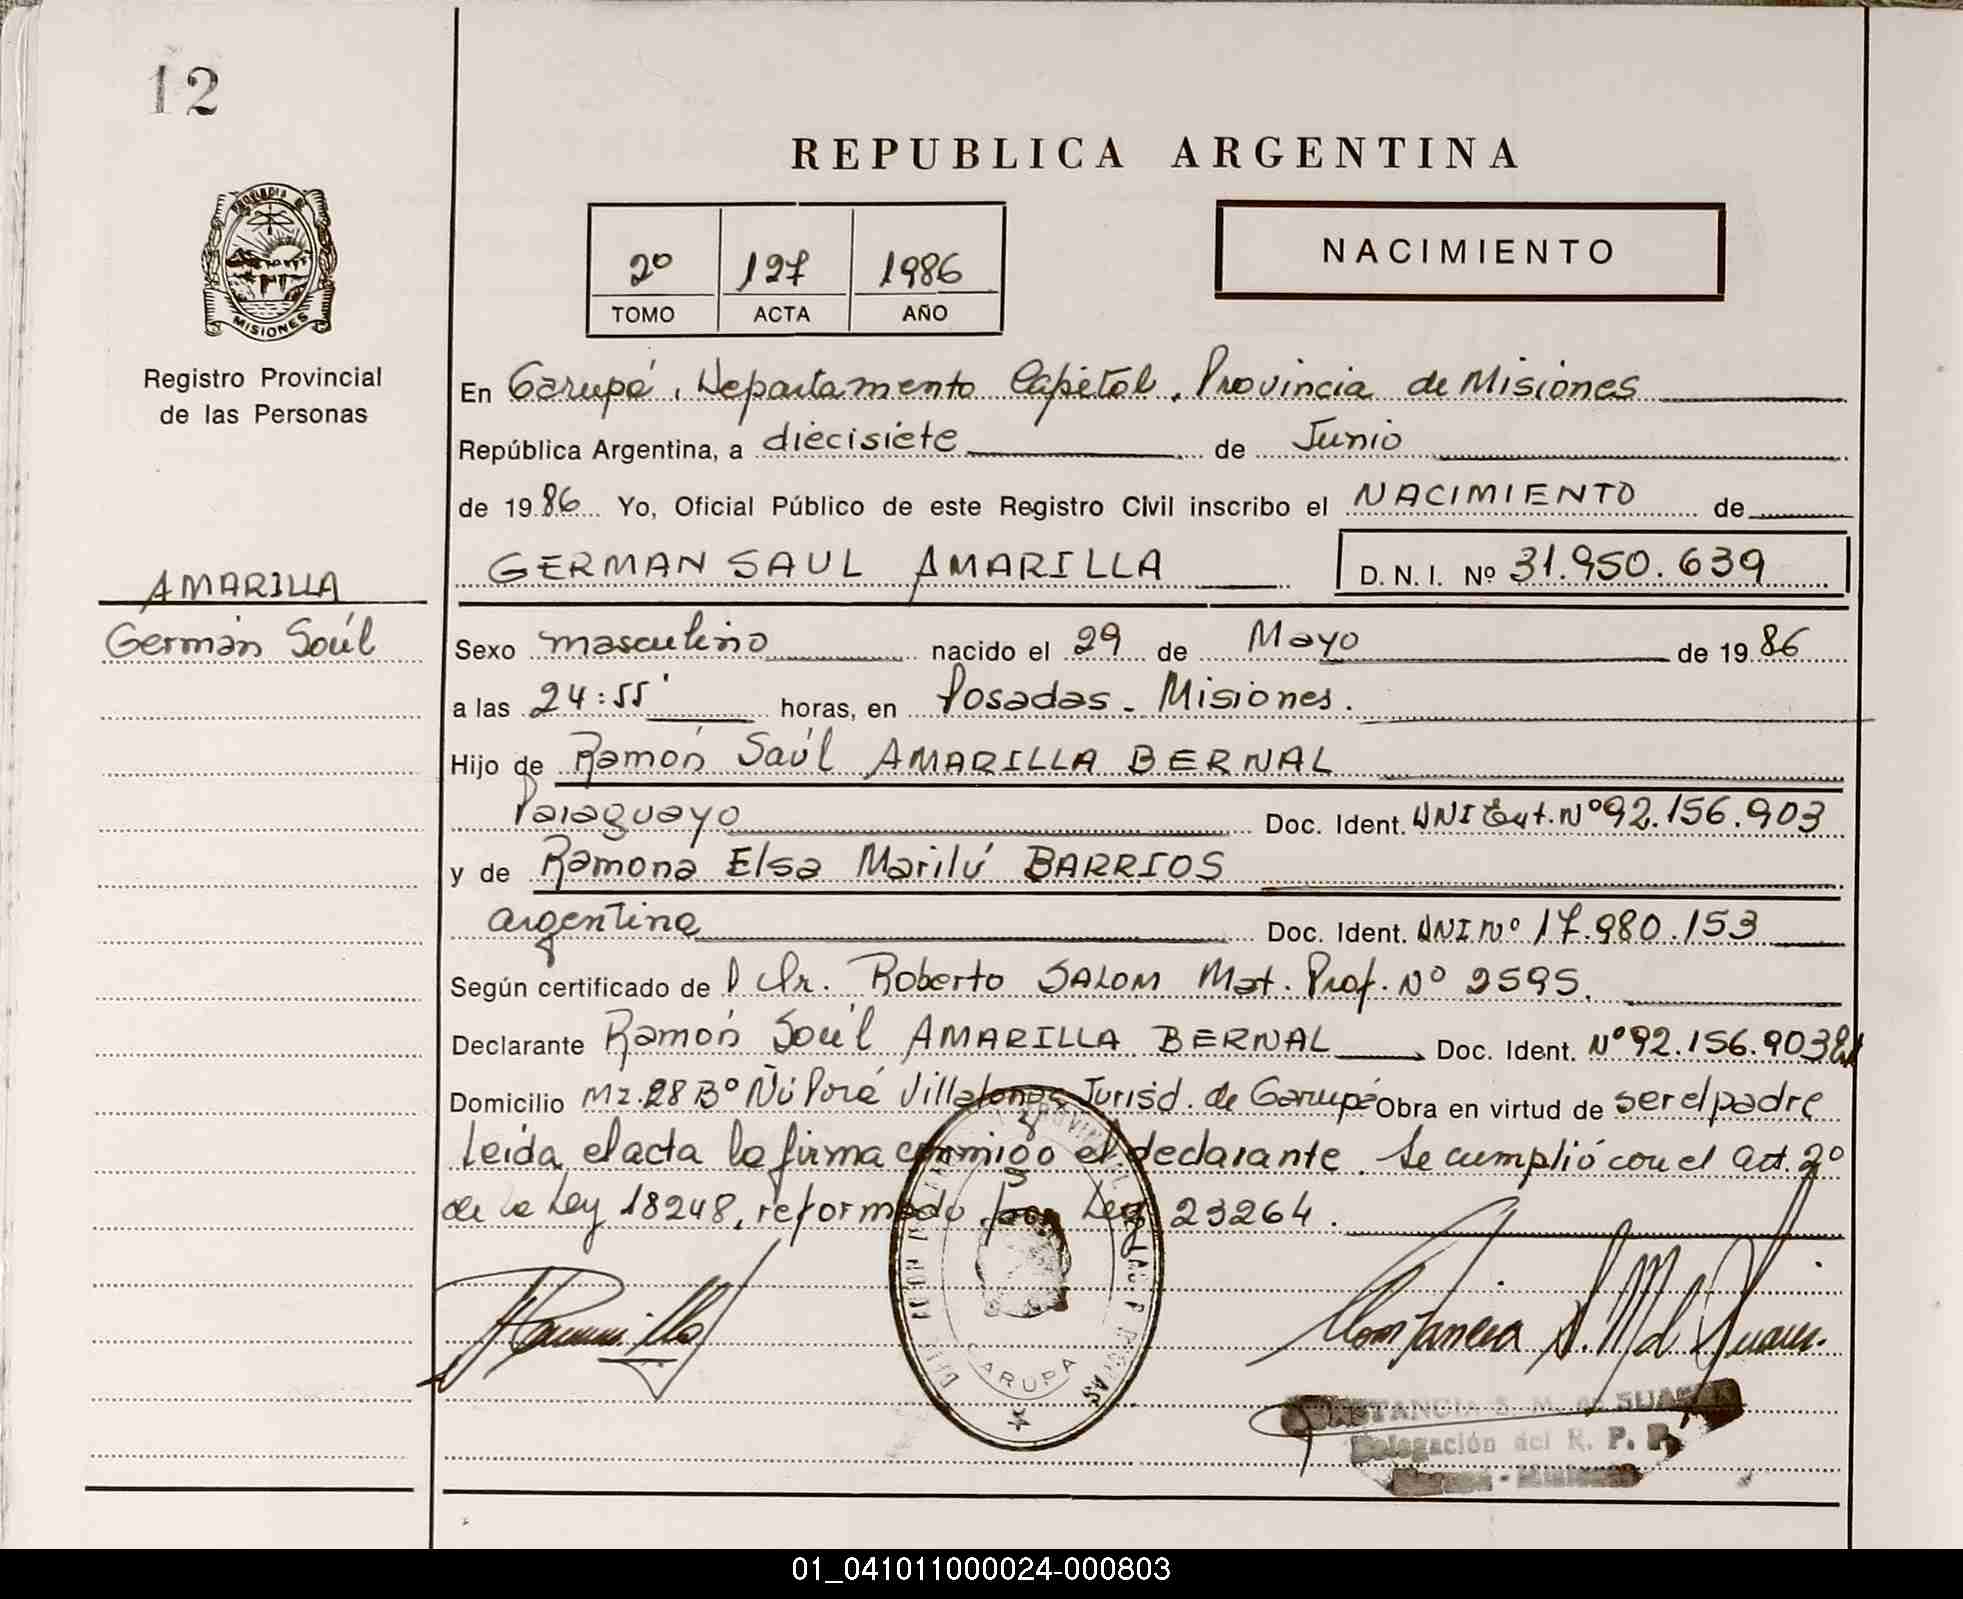 12
REPUBLICA ARGENTINA
PROVINCIA D
MISIONES
Registro Provincial
de las Personas
2º 127 1986
TOMO ACTA AÑO
NACIMIENTO
En Garupá, Departamento Capital, Provincia de Misiones
República Argentina, a diecisiete de Junio
de 1986 Yo, Oficial Público de este Registro Civil inscribo el NACIMIENTO de
GERMAN SAUL AMARILLA D. N. I. Nº 31.950.639
AMARILLA
Germán Saúl
Sexo masculino nacido el 29 de Mayo de 1986
a las 24:55' horas, en Posadas - Misiones.
Hijo de Ramón Saúl AMARILLA BERNAL
Paraguayo Doc. Ident. DNI Ext. Nº 92.156.903
y de Ramona Elsa Marilú BARRIOS
argentina Doc. Ident. DNI Nº 17.980.153
Según certificado de Dr. Roberto SALOM Mat. Prof. Nº 2595.
Declarante Ramón Saúl AMARILLA BERNAL Doc. Ident. Nº 92.156.903
Domicilio Mz. 28 Bº Ñu Porá Villalonga Jurisd. de Garupá Obra en virtud de ser el padre
Leída el acta la firma conmigo el declarante. Se cumplió con el art. 2º
de la Ley 18248, reformado por Ley 23264.
ARUPA
CONSTANCIA S. M. de SUA
Delegación del R. P. P.
01_041011000024-000803